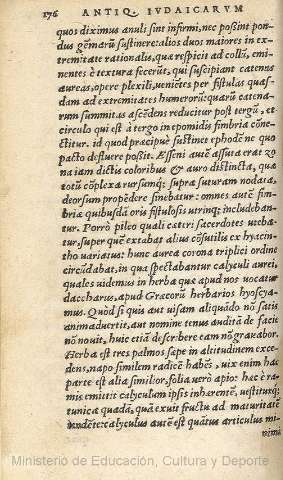 176 ANTIQ. IVDAICARVM
quos diximus anuli sint infirmi, nec possint pon-
dus gemārū sustinere: alios duos maiores in ex-
tremitate rationalis, qua respicit ad collū, emi-
nentes è textura fecerūt, qui suscipiant catenas
aureas, opere plexili, veniētes per fistulas quas-
dam ad extremitates humerorū: quarū catena-
rum summitas ascēdens reducitur post tergū, et
circulo qui est à tergo in epomidis fimbria cōne-
ctitur. id quod præcipuè sustinet ephodē ne quo
pacto defluere possit. Esseni autē assuta erat zo
na iam dictis coloribus & auro distincta, quæ
totū cōplexa rursumq; supra suturam nodata,
deorsum propēdere sinebatur: omnes autē fim-
briæ quibusdā oris fistulosis utrinq; includeban-
tur. Porrò pileo quali cæteri sacerdotes uteba-
tur, super quē extabat alius cōsutilis ex hyacin-
tho uariatus: hunc aurea corona triplici ordine
circūdabat, in qua spectabantur calyculi aurei,
quales uidemus in herba quæ apud nos uocatur
daccharus, apud Græcorū herbarios hyoscya-
mus. Quòd si quis aut uisam aliquādo nō satis
animaduertit, aut nomine tenus audità de facie
nō nouit, huic etiā describere eam nō grauabor.
Herba est tres palmos sæpe in altitudinem exce-
dens, napo similem radicē habēs, uix enim hac
parte est alia similior, folia uerò apio: hæc è ra-
mis emittit calyculum ipsis inhærentē, uestiturq;
tunica quadā, quā exuit fructu ad maturitatē
calyculus autē est quātus articulus mi-
nimi
Ministerio de Educación, Cultura y Deporte